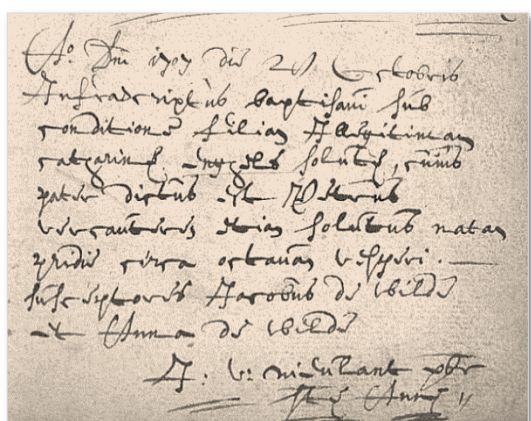 Ao Dni 1707 die 28 Octobris
Infrascriptus baptisavi sub
conditione filiam Illegitimam
catharinæ engels solutæ, cuius
pater dictus est Petrus
vercauteren etiam solutus natam
pridie circa octavam vesperi.
susceptores Jacobus de wilde
et Anna de wilde
J: v: meulant pbr
stæ Annæ